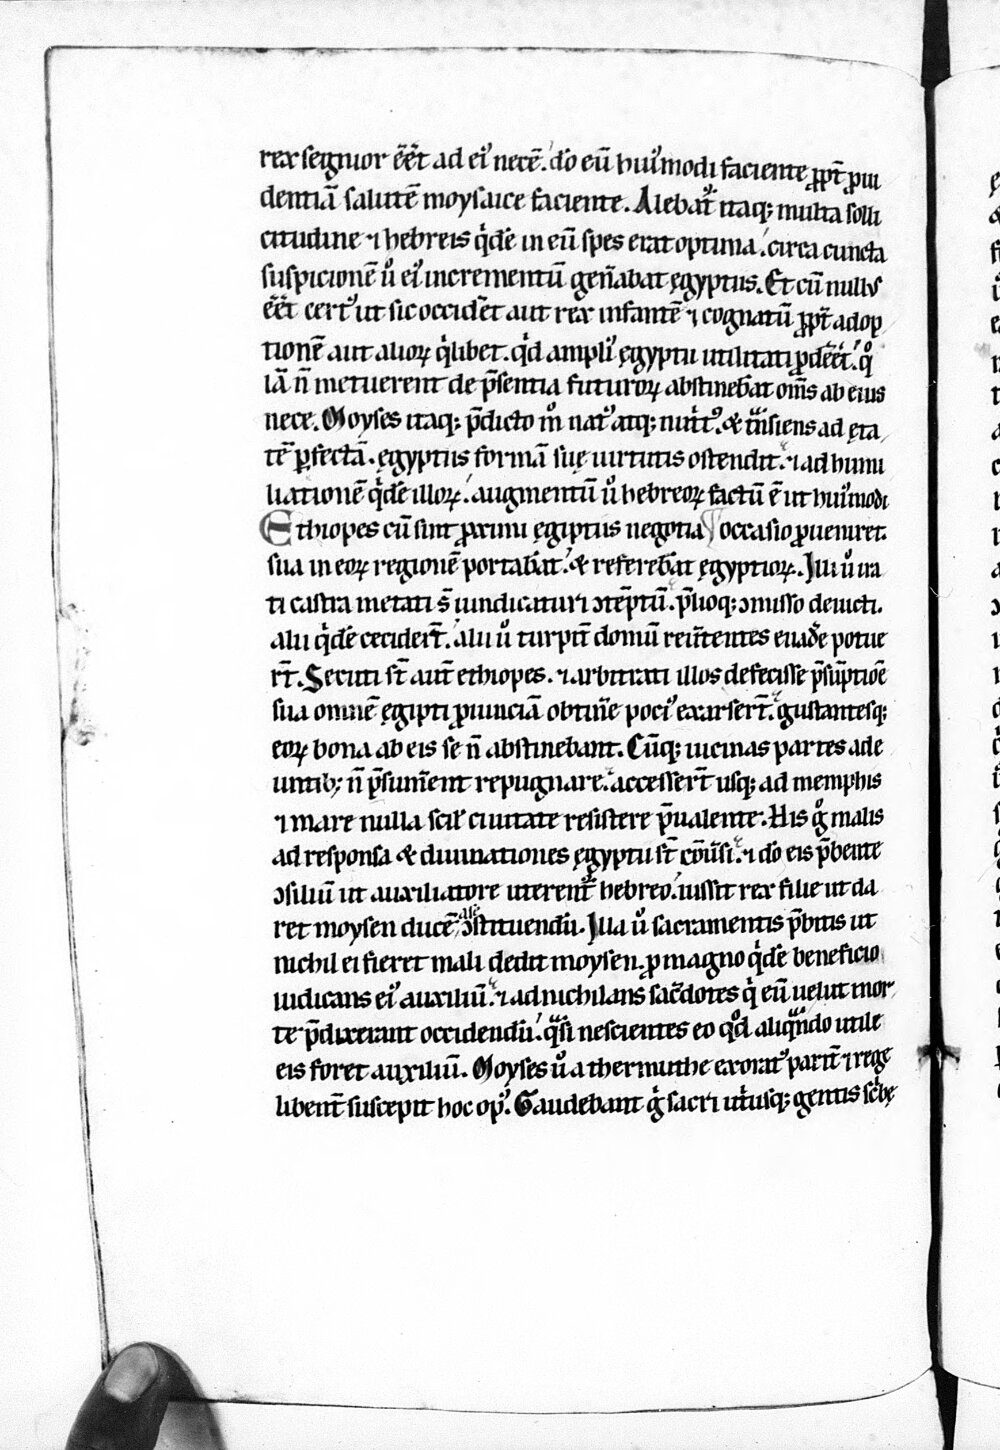 rex segnior ēēt ad ei᾽ necē. d̄o eū hui᾽modi faciente ꝓpt̄ ꝓui
dentiā salutē moysaice faciente. Alebat᷑ itaq; multa solli
citudine ⁊ hebreis q̇dē in eū spes erat optima. circa cuncta
suspicionē ů ei᾽ incrementū gen̄abat ęgyptiis. Et cū nullus
ēēt cert᾽ ut sic occidēt aut rex infantē ⁊ cognatū ꝓpt̄ adop
tionē aut alioꝝ q̇libet. q̇d ampli᾽ ęgyptii utilitati ꝓdēēt. q̊
iā n̄ metuerent de p̄sentia futuroꝝ abstinebāt om̄s ab eius
nece. Moyses itaq; p̄dicto m̊ nat᾽ atq; nut᾽t᾽. & t̄nsiens ad ęta
tē ꝑfectā. ęgyptiis formā suę uirtutis ostendit. ⁊ ad humi
liationē q̇dē illoꝝ. augmentū ů hebreoꝝ factū ē ut hui᾽modi
Ethiopes cū sint ꝓximi ęgiptiis negotia ¶ occasio ꝓueniret.
sua in eoꝝ regionē portabāt. & referebāt ęgyptioꝝ. Illi ů ira
ti castra metati s̄ uindicaturi ↄtēptū. p̄lioq; ↄmisso deuicti.
alii q̇dē cecider̄t. alii ů turpit̄ domū reūtentes euadē potue
r̄t. Secuti s̄t aūt ethiopes. ⁊ arbitrati illos defecisse p̄sūptiōe
sua omnē ęgipti ꝓuinciā obtin̄e poci᾽ exarser̄t. gustantesq;
eoꝝ bona ab eis se n̄ abstinebant. Cūq; uicinas partes ade
untib; n̄ p̄sum̄ent repugnare. accesser̄t usq; ad memphis
⁊ mare nulla scil᾽ ciuitate resistere p̄ualente. His g̊ malis
ad responsa & diuinationes ęgyptii s̄t cōūsi. ⁊ d̄o eis p̄bente
ↄsiliū ut auxiliatore uterent᷑ hebreo. iussit rex filię ut da
ret moysen ducē ale ↄstituendū. Illa ů sacramentis p̄bitis ut
nichil ei fieret mali dedit moysen. ꝓ magno q̇dē beneficio
iudicans ei᾽ auxiliū. ⁊ adnichilans sac̄dotes q̇ eū uelut mor
te p̄dixerant occidendū. q̄si nescientes eo q̊d aliq̄ndo utile
eis foret auxiliū. Moyses ů a thermuthe exorat᾽ parit̄ ⁊ rege
libent̄ suscepit hoc op᾽. Gaudebant g̊ sacri ut̄iusq; gentis sc̄bę